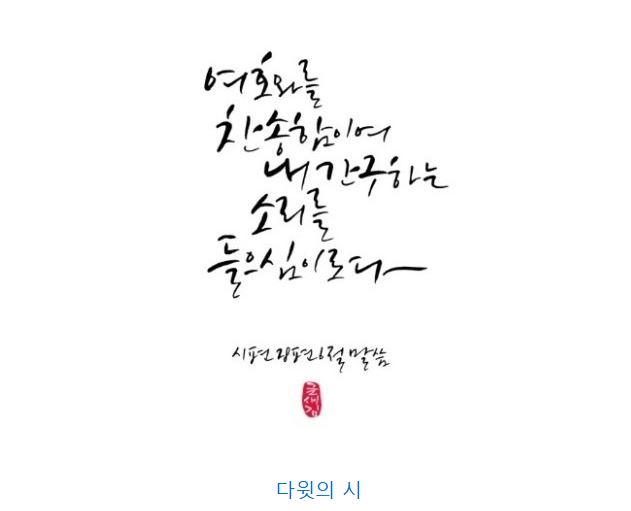 여호와를
찬송함이여
내 간구하는
소리를
들으심이로다
시편 28편 6절 말씀
글새김
다윗의 시